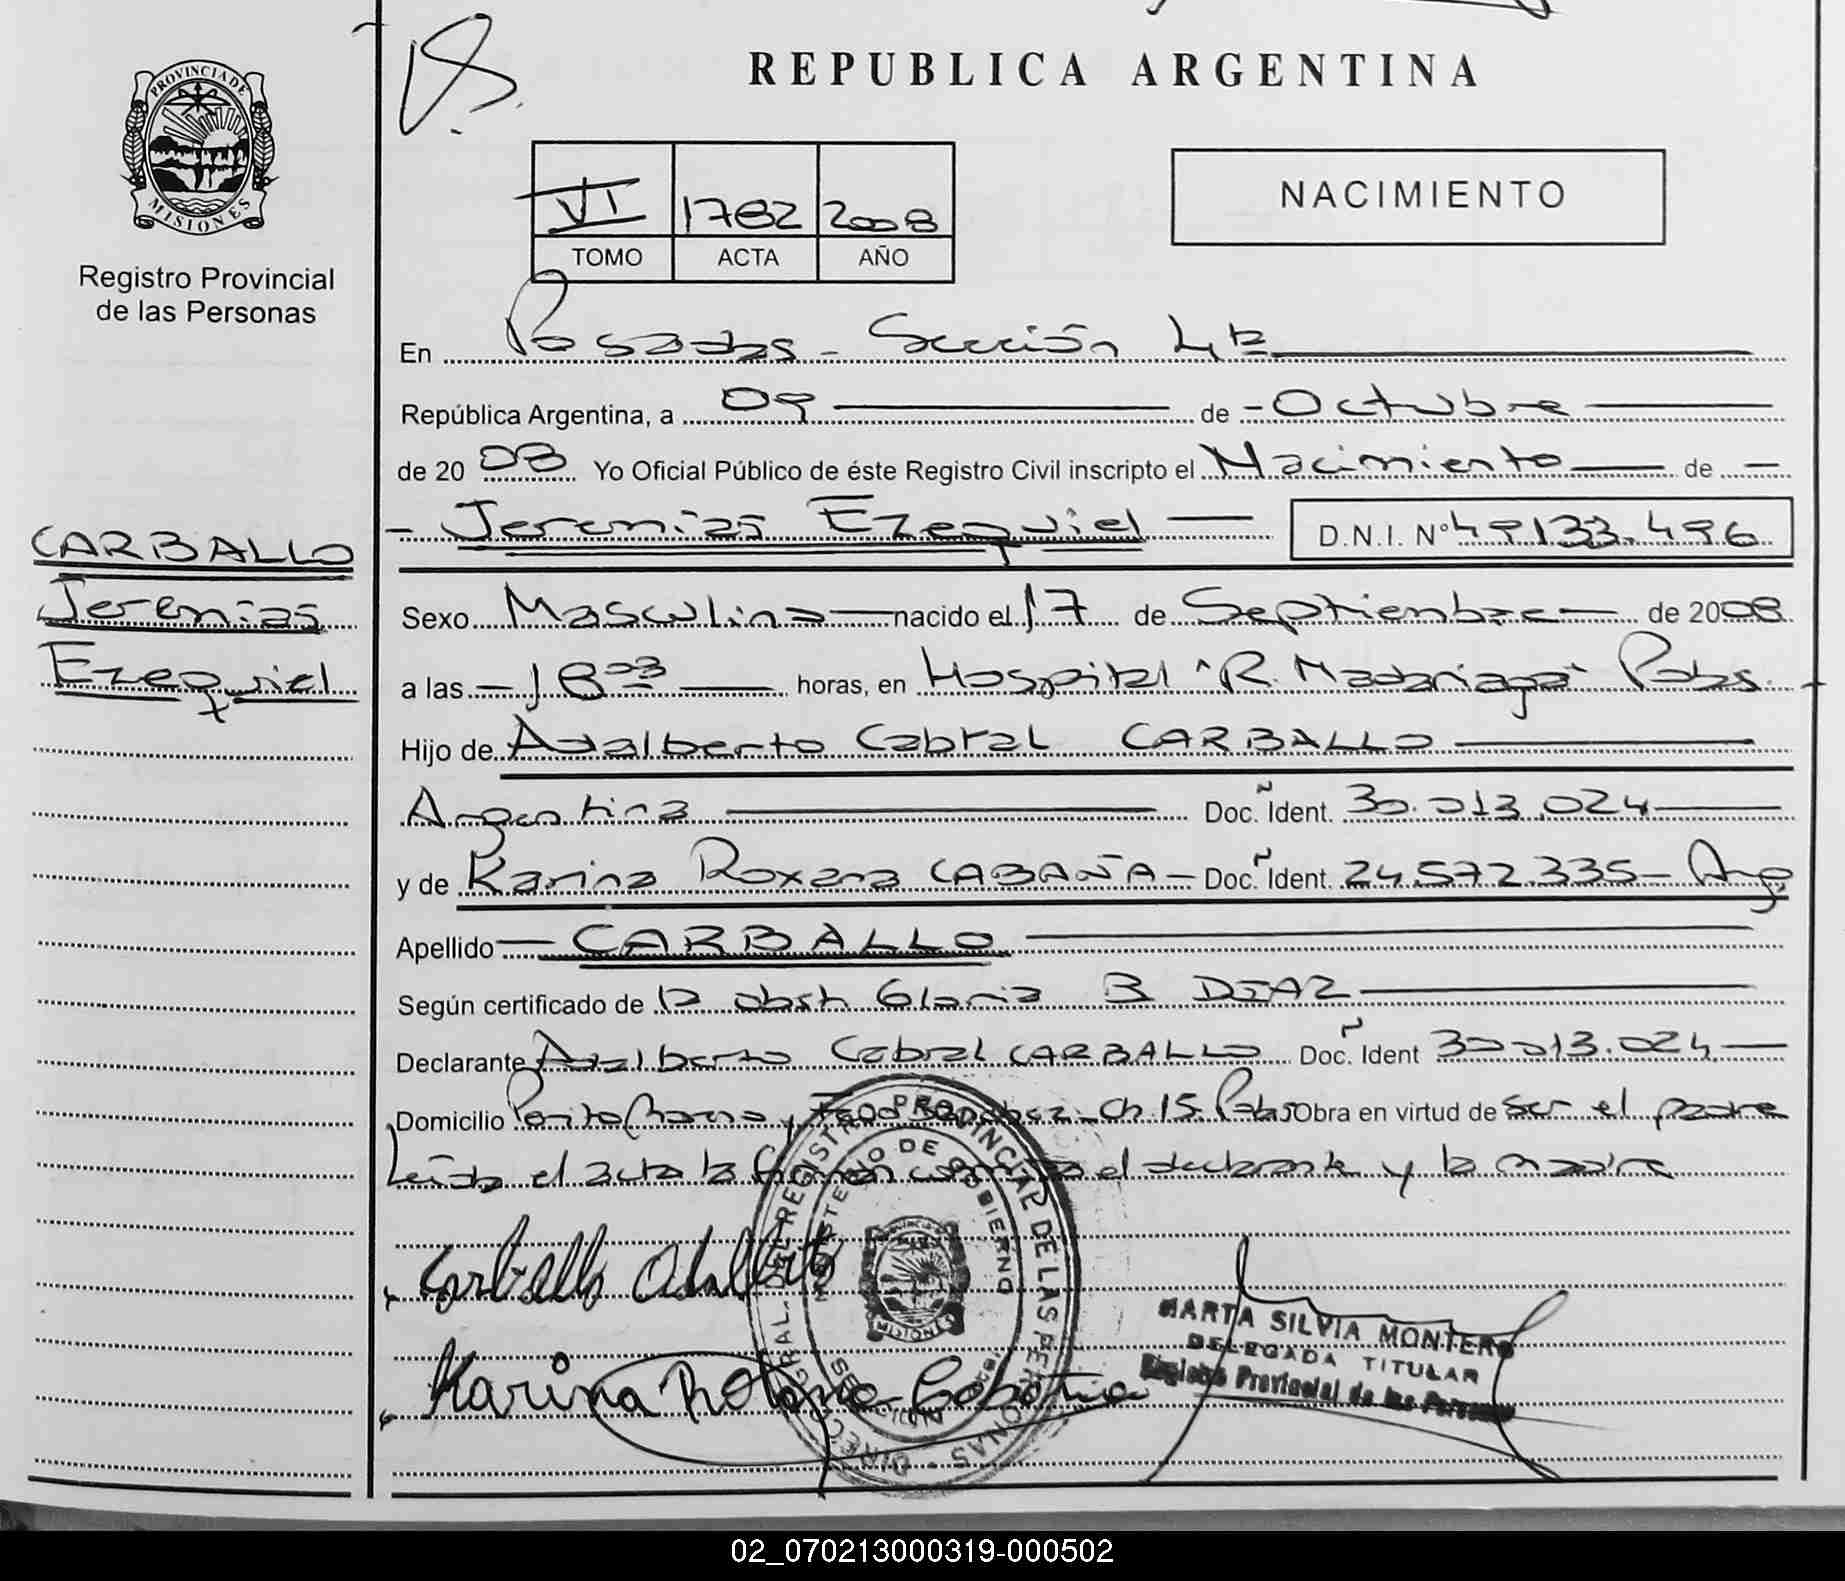 PROVINCIA DE
MISIONES
Registro Provincial
de las Personas
CARBALLO
Jeremías
Ezequiel
REPUBLICA ARGENTINA
VI 1782 2008
TOMO ACTA AÑO
NACIMIENTO
En Posadas - Sección 4ta
República Argentina, a 09 de - Octubre
de 20 08 Yo Oficial Público de éste Registro Civil inscripto el Nacimiento de -
- Jeremías Ezequiel D.N.I. Nº 49133.496
Sexo Masculino nacido el 17 de Septiembre de 2008
a las - 18 03 horas, en Hospital "R. Madariaga" Pdas.
Hijo de Adalberto Cabral CARBALLO
Argentina Doc. Ident. 30.013.024
y de Karina Roxana CABAÑA - Doc. Ident. 24.572.335 - Arg
Apellido - CARBALLO
Según certificado de la obst. Gloria B DIAZ
Declarante Adalberto Cabral CARBALLO Doc. Ident 30013.024
Domicilio y Ch 15. Pdas Obra en virtud de ser el padre
Leída el acta la firman el declarante y la madre
Carballo Adalberto
Karina
DIREC. GRAL. DEL REGISTRO PROVINCIAL DE LAS PERSONAS
MINISTERIO DE GOBIERNO
MISIONES
MARTA SILVIA MONTERO
DELEGADA TITULAR
Registro Provincial de las Personas
02_070213000319-000502